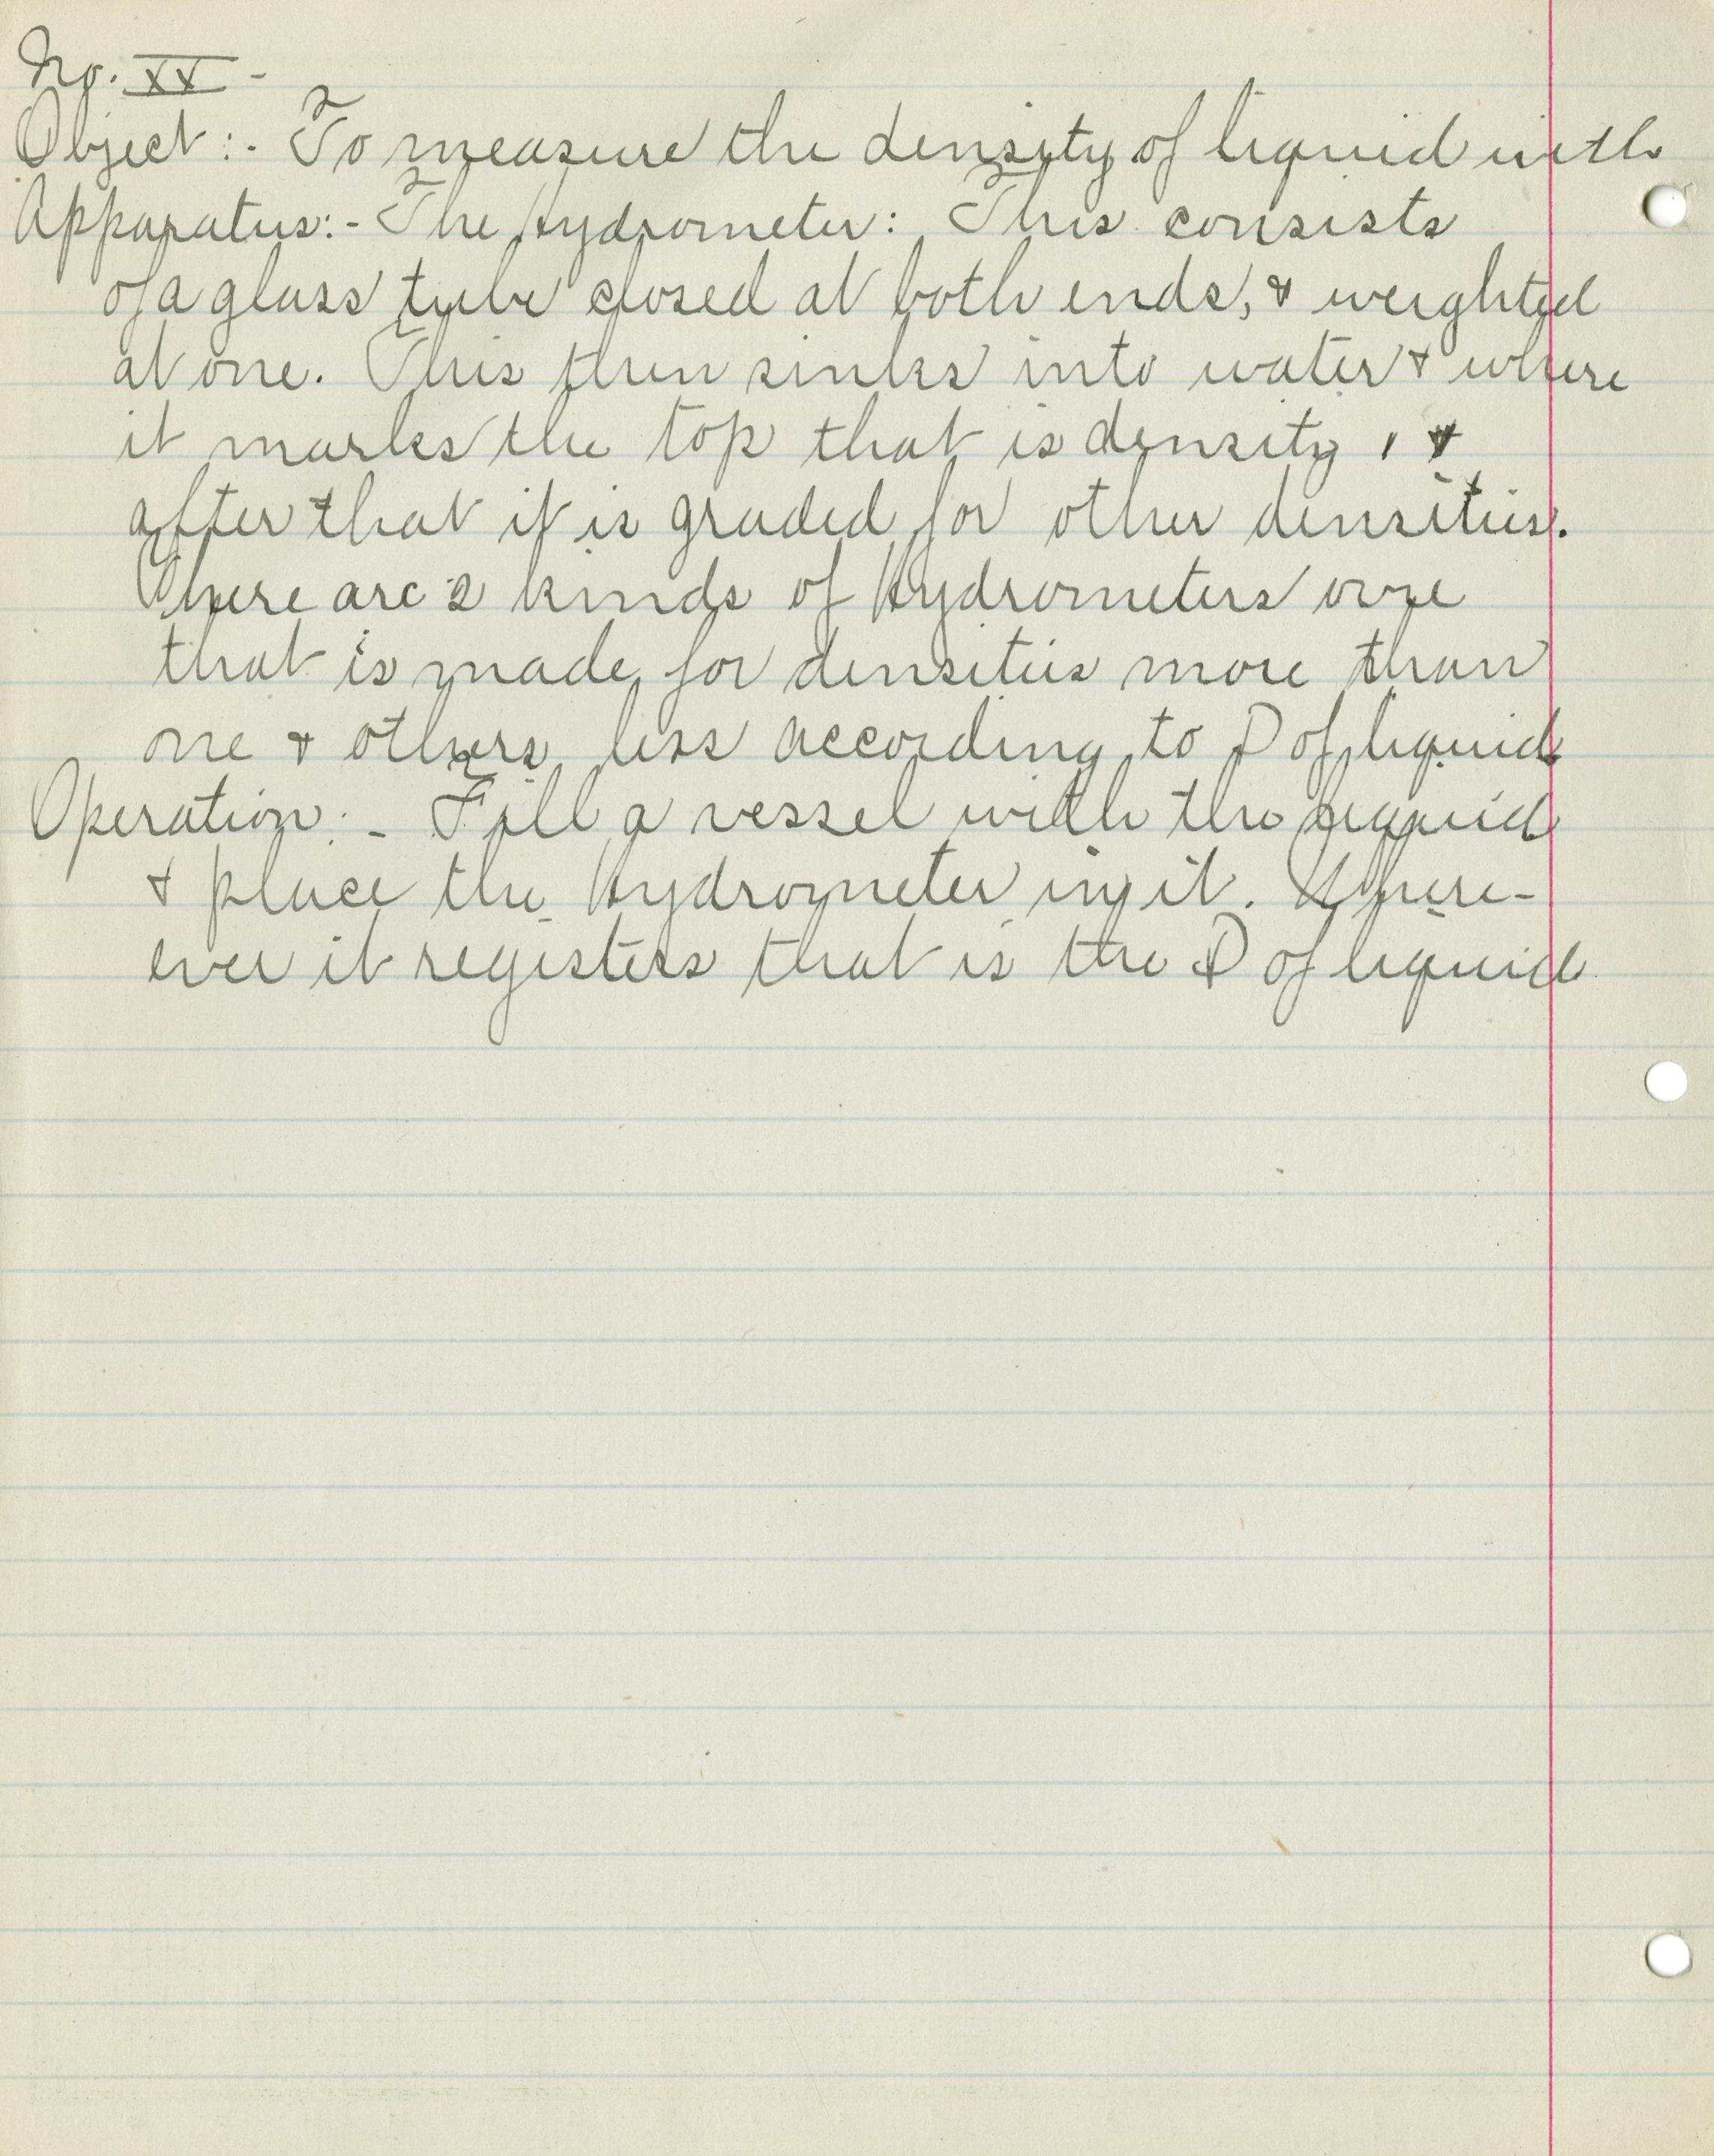 No. XX -
Object :- To measure the density of liquid with
Apparatus:- The Hydrometer: This consists
of a glass tube closed at both ends, & weighted
at one. This then sinks into water & where
it marks the top that is density 1 &
after that it is graded for other densities.
There are 2 kinds of Hydrometers one
that is made for densities more than
one & others less according to D of liquid
Operation:- Fill a vessel with the liquid
& place the Hydrometer in it. Where-
ever it registers that is the D of liquid